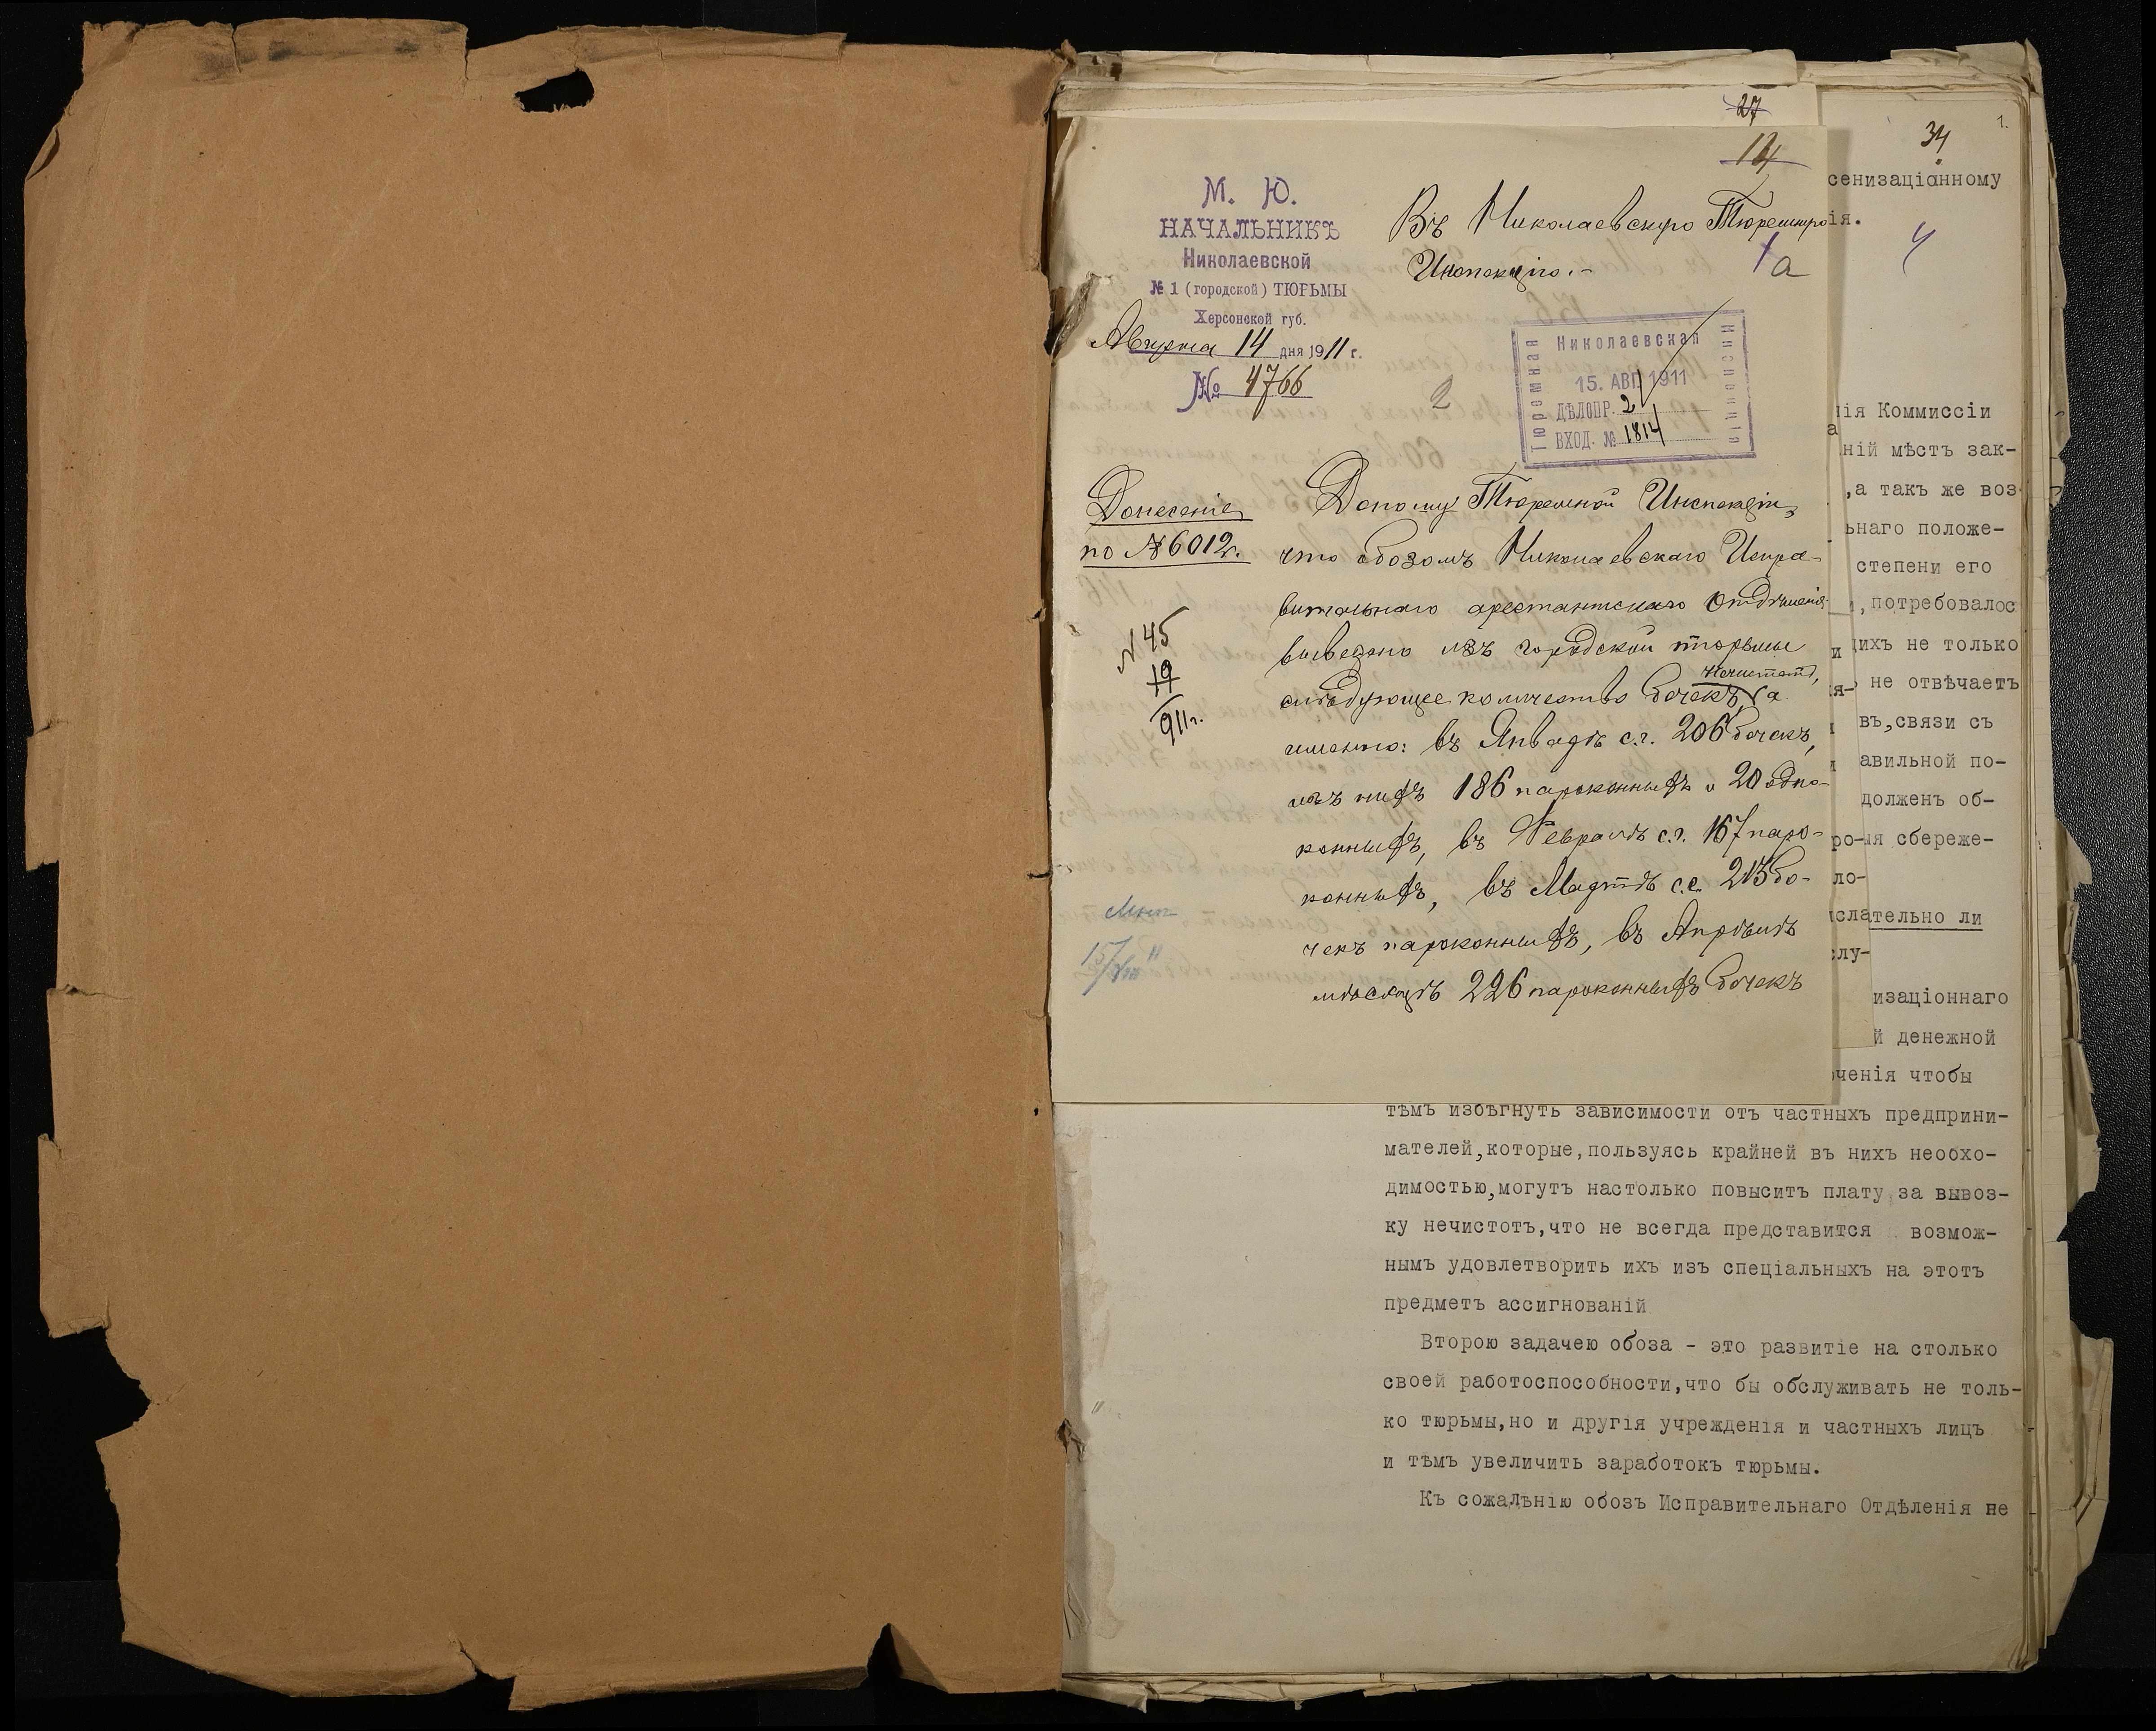 27
14
М. Ю.
НАЧАЛЬНИКЪ
Николаевской
№ 1 (городской) ТЮРЬМЫ
Херсонской губ.
Августа 14 дня 1911 г.
№ 4766
Въ Николаевскую Тюремную
Инспекцію.-
1а
2
Николаевская
Тюремная
Инспекція
15. АВГ. 1911
ДѢЛОПР. 2
ВХОД. № 1814
Донесеніе
по № 6012.
N 45
19
911г.
Доношу Тюремной Инспекціи,
что обозомъ Николаевскаго Испра-
вительнаго арестантскаго Отдѣленія
вывезено изъ городской тюрьмы
слѣдующее количество бочекъ нечистотъ, а
именно: въ Январѣ с.г. 206 бочекъ,
изъ нихъ 186 пароконныхъ и 20 одно-
конныхъ, въ Февралѣ с.г. 167 паро-
конныхъ, въ Мартѣ с.г. 215 бо-
чекъ пароконныхъ, въ Апрѣлѣ
мѣсяцѣ 226 пароконныхъ бочекъ
15/VIII
1.
34
4
сенизаціонному
ія.
нія Коммиссіи
ній мѣстъ зак-
,а такъ же воз-
ьнаго положе-
степени его
,потребовалос
ихъ не только
не отвѣчаетъ
въ,связи съ
авильной по-
долженъ об-
ія сбереже-
слательно ли
слу-
изаціоннаго
й денежной
ченія чтобы
тѣмъ избѣгнуть зависимости отъ частныхъ предприни-
мателей,которые,пользуясь крайней въ нихъ необхо-
димостью,могутъ настолько повысить плату за вывоз-
ку нечистотъ,что не всегда представится возмож-
нымъ удовлетворить ихъ изъ спеціальныхъ на этотъ
предметъ ассигнованій
Второю задачею обоза - это развитіе на столько
своей работоспособности,что бы обслуживать не толь-
ко тюрьмы,но и другія учрежденія и частныхъ лицъ
и тѣмъ увеличить заработокъ тюрьмы.
Къ сожалѣнію обозъ Исправительнаго Отдѣленія не